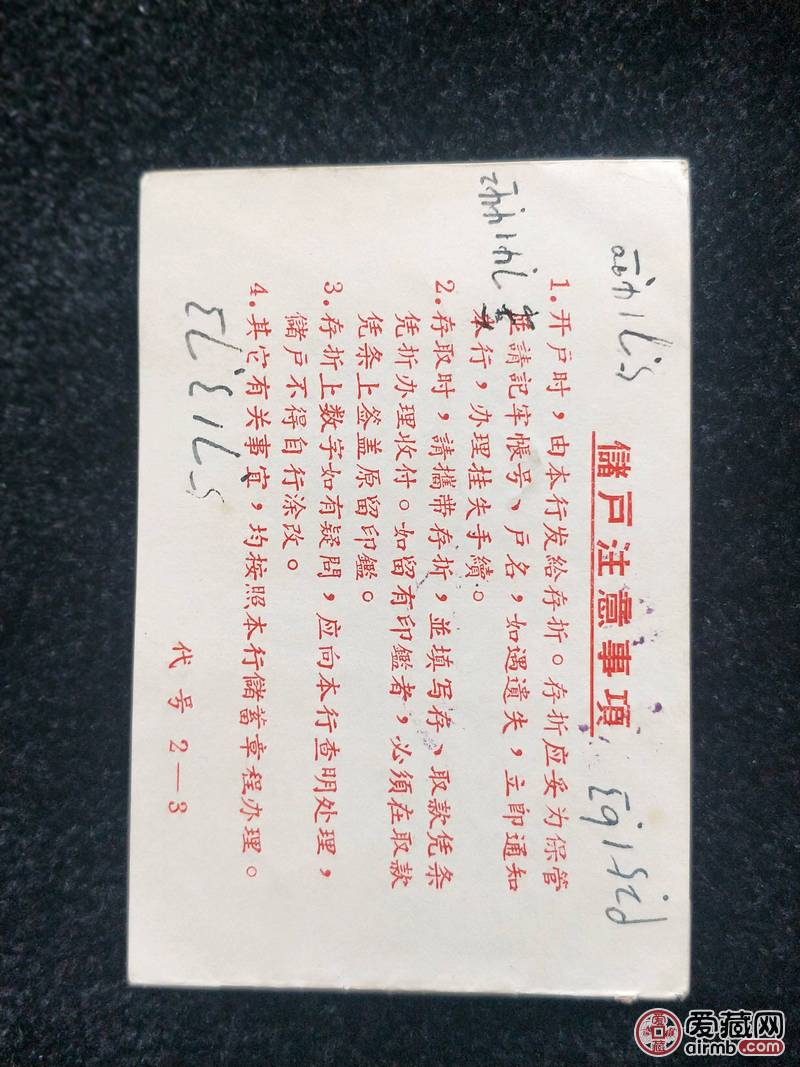 儲戶注意事項
1.开户时，由本行发給存折。存折应妥为保管
並請記牢帳号、戶名，如遇遺失，立即通知
本行，办理挂失手續。
2.存取时，請攜带存折，並填写存、取款凭条
凭折办理收付。如留有印鑑者，必須在取款
凭条上签盖原留印鑑。
3.存折上数字如有疑問，应向本行查明处理，
儲戶不得自行涂改。
4.其它有关事宜，均按照本行儲蓄章程办理。
代号2—3
爱藏网
airmb.com